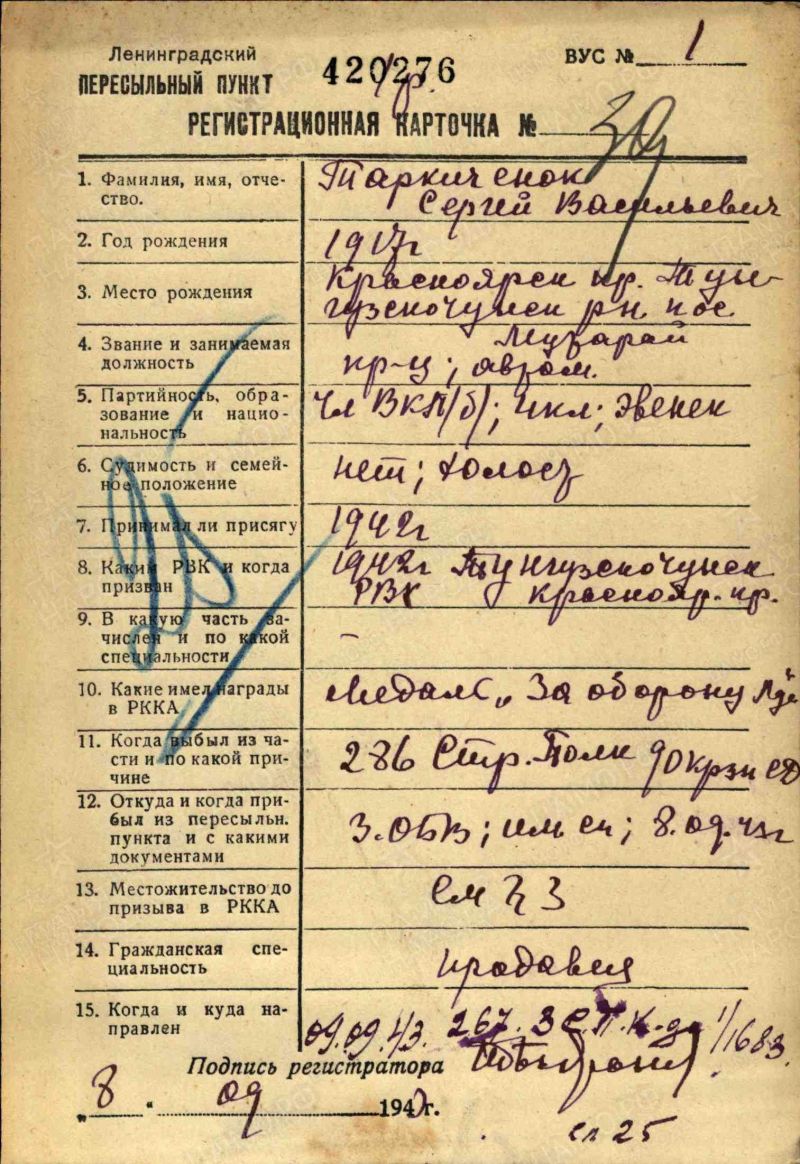 Ленинградский
ПЕРЕСЫЛЬНЫЙ ПУНКТ
420276
ВУС № 1
РЕГИСТРАЦИОННАЯ КАРТОЧКА №
1. Фамилия, имя, отче-
ство.
Таркиченок
Сергей Васильевич
2. Год рождения
1917г
3. Место рождения
Красноярск кр. Тун-
гузскочунск рн. пос.
Музарай
4. Звание и занимаемая
должность
кр-ц; автом.
5. Партийность, обра-
зование и нацио-
нальность
Чл ВКП/б/; 4кл; эвенек
6. Судимость и семей-
ное положение
нет; холост
7. Принимал ли присягу
1942г
8. Каким РВК и когда
призван
1942г Тунгузскочунск
РВК краснояр. кр.
9. В какую часть за-
числен и по какой
специальности
–
10. Какие имел награды
в РККА
Медаль „За оборону
11. Когда выбыл из ча-
сти и по какой при-
чине
286 Стр. Полк 90 крзн СД
12. Откуда и когда при-
был из пересыльн.
пункта и с какими
документами
3. ОБВ; им сп; 8.09.43г
13. Местожительство до
призыва в РККА
См 3
14. Гражданская спе-
циальность
продавец
15. Когда и куда на-
правлен
09.09.43. 267. З С.П. К-да 1/1683.
Подпись регистратора
„ 8 “ 09 194 г.
сл 25